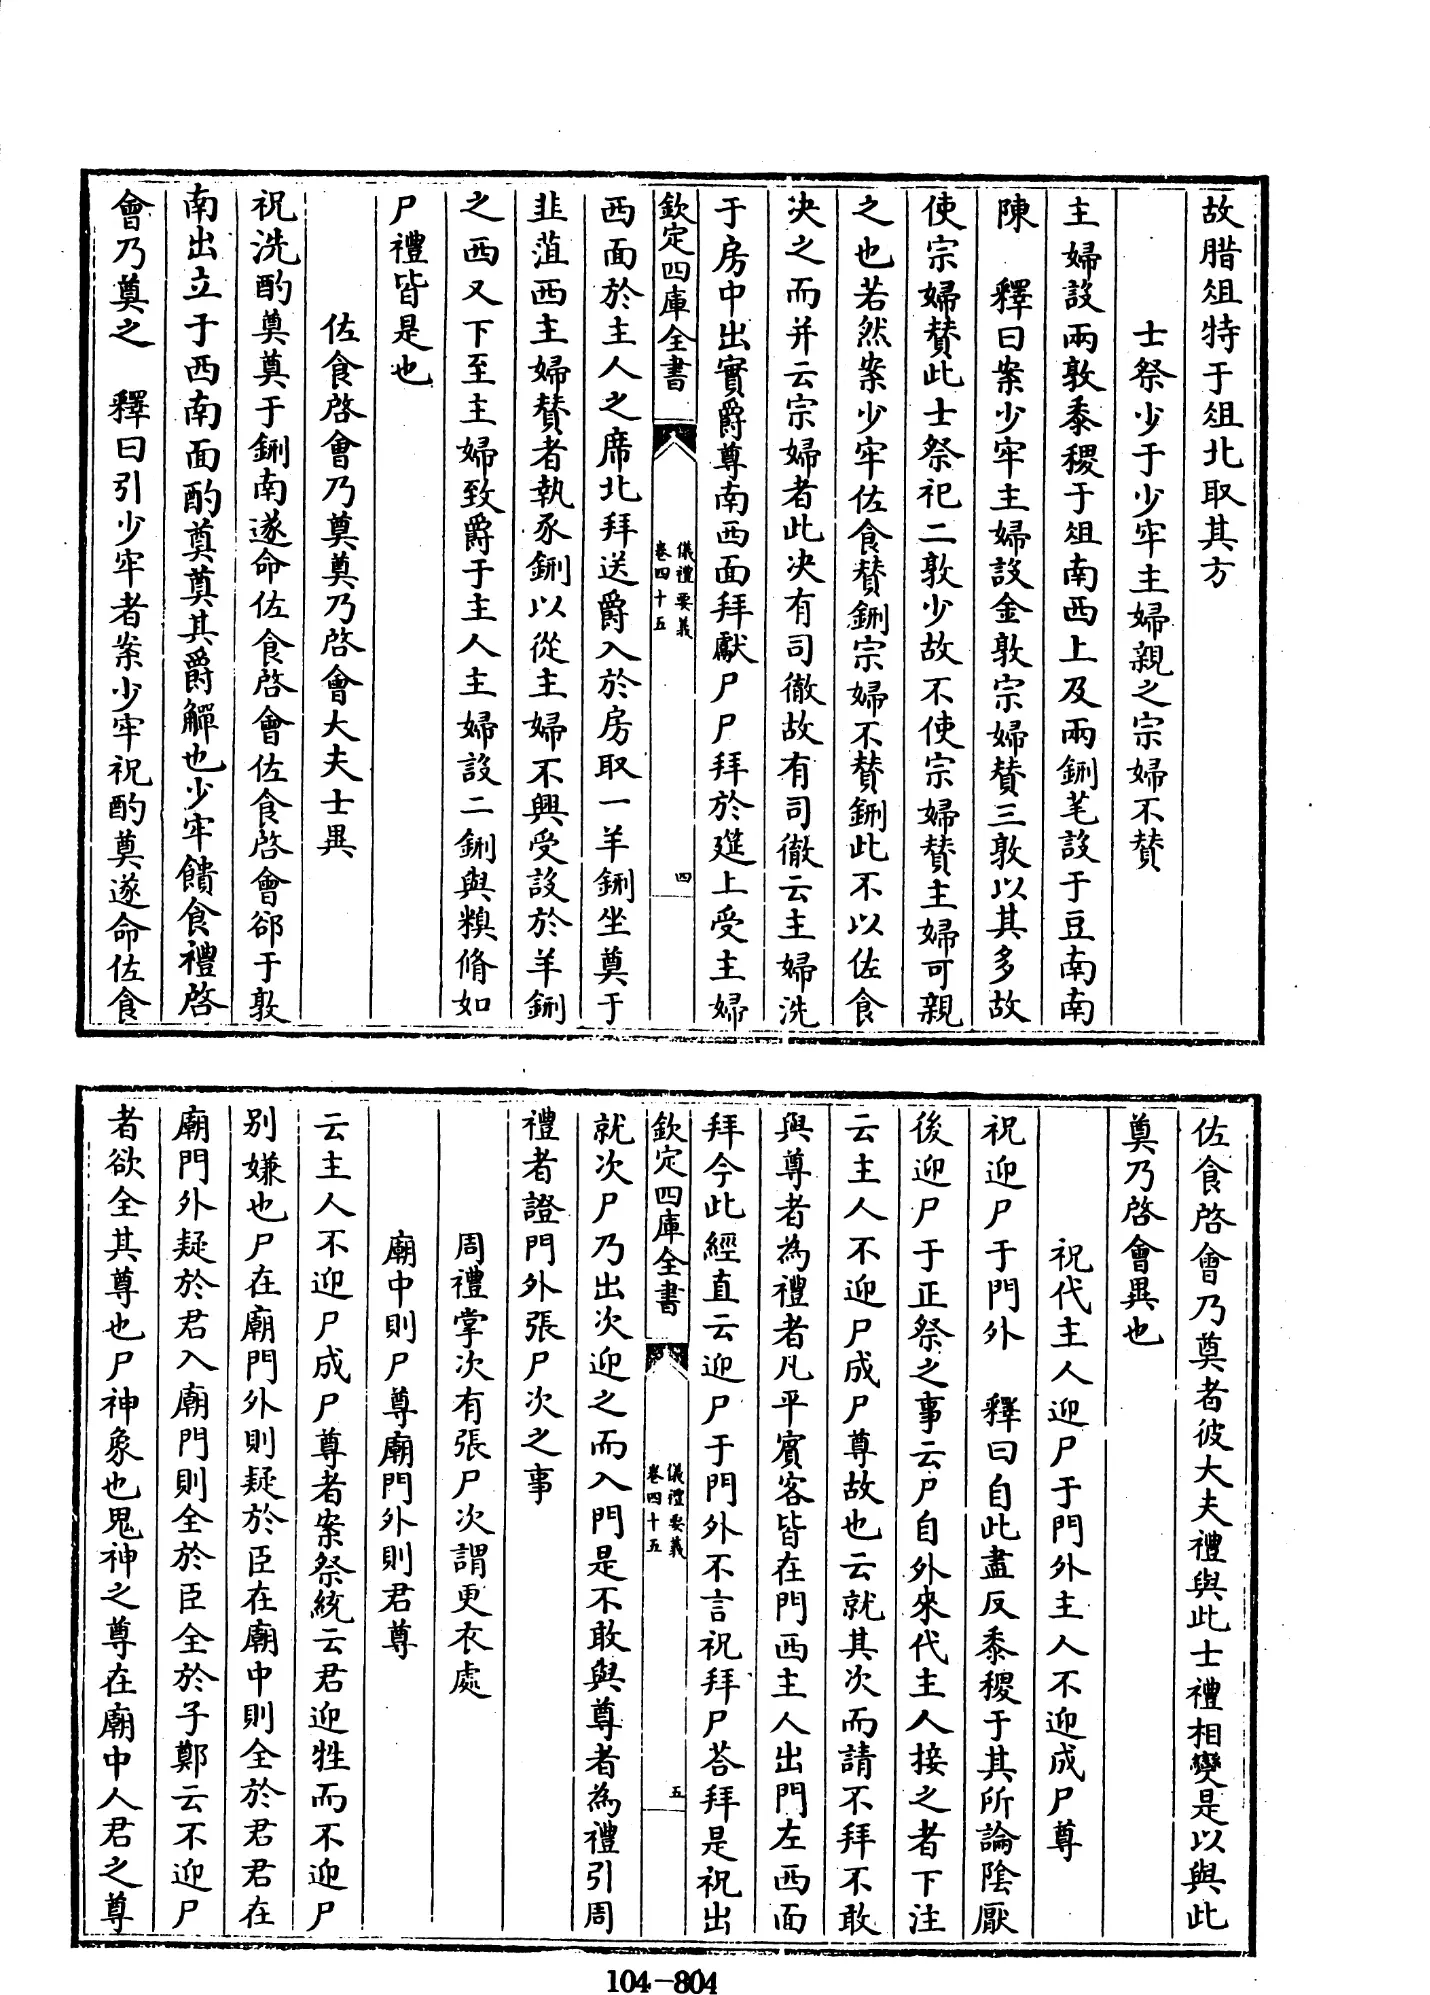 故腊俎特于俎北取其方
士祭少于少牢主婦親之宗婦不賛
主婦設兩敦黍稷于俎南西上及兩鉶芼設于豆南南
陳　釋曰案少牢主婦設金敦宗婦賛三敦以其多故
使宗婦賛此士祭祀二敦少故不使宗婦賛主婦可親
之也若然案少牢佐食賛鉶宗婦不賛鉶此不以佐食
決之而并云宗婦者此決有司徹故有司徹云主婦洗
于房中出實爵尊南西面拜獻尸尸拜於筵上受主婦
欽定四庫全書
儀禮要義
卷四十五
四
西面於主人之席北拜送爵入於房取一羊鉶坐奠于
韭菹西主婦賛者執豕鉶以從主婦不興受設於羊鉶
之西又下至主婦致爵于主人主婦設二鉶與糗脩如
尸禮皆是也
佐食啓會乃奠奠乃啓會大夫士異
祝洗酌奠奠于鉶南遂命佐食啓會佐食啓會郤于敦
南出立于西南面酌奠奠其爵觶也少牢饋食禮啓
會乃奠之　釋曰引少牢者案少牢祝酌奠遂命佐食
佐食啓會乃奠者彼大夫禮與此士禮相變是以與此
奠乃啓會異也
祝代主人迎尸于門外主人不迎成尸尊
祝迎尸于門外　釋曰自此盡反黍稷于其所論陰厭
後迎尸于正祭之事云尸自外來代主人接之者下注
云主人不迎尸成尸尊故也云就其次而請不拜不敢
與尊者為禮者凡平賓客皆在門西主人出門左西面
拜今此經直云迎尸于門外不言祝拜尸荅拜是祝出
欽定四庫全書
儀禮要義
卷四十五
五
就次尸乃出次迎之而入門是不敢與尊者為禮引周
禮者證門外張尸次之事
周禮掌次有張尸次謂更衣處
廟中則尸尊廟門外則君尊
云主人不迎尸成尸尊者案祭統云君迎牲而不迎尸
别嫌也尸在廟門外則疑於臣在廟中則全於君君在
廟門外疑於君入廟門則全於臣全於子鄭云不迎尸
者欲全其尊也尸神象也鬼神之尊在廟中人君之尊
104-804